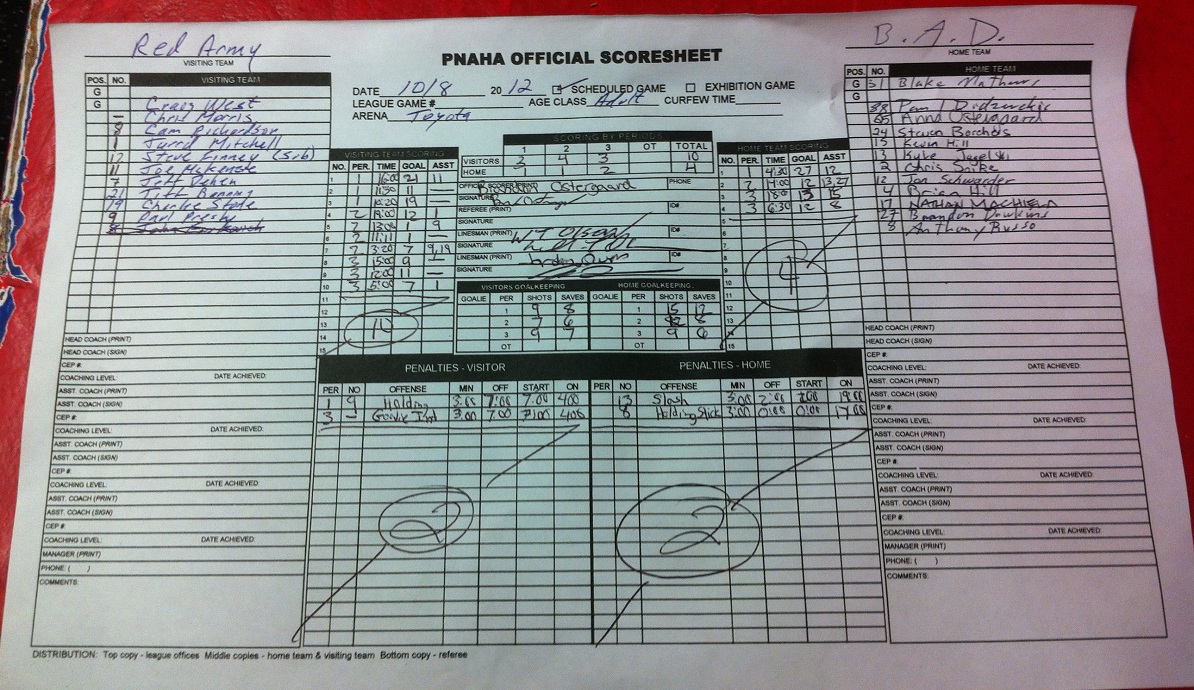 Red Army
VISITING TEAM
PNAHA OFFICIAL SCORESHEET
B.A.D.
HOME TEAM
DATE 10/8 2012 SCHEDULED GAME EXHIBITION GAME
LEAGUE GAME# AGE CLASS Adult CURFEW TIME
ARENA Toyota
POS. NO. VISITING TEAM
G
G Craig West
– Chris Morris
8 Cam Richardson
1 Jarred Mitchell
12 Steve Finney (Sub)
11 Joe McKenzie
7 Jeff Dehen
21 Tate Benning
19 Charlie Stole
9 Paul Presby
HEAD COACH (PRINT)
HEAD COACH (SIGN)
CEP #:
COACHING LEVEL: DATE ACHIEVED:
ASST. COACH (PRINT)
ASST. COACH (SIGN)
CEP #:
COACHING LEVEL: DATE ACHIEVED:
ASST. COACH (PRINT)
ASST. COACH (SIGN)
CEP #:
COACHING LEVEL: DATE ACHIEVED:
ASST. COACH (PRINT)
ASST. COACH (SIGN)
CEP #:
COACHING LEVEL: DATE ACHIEVED:
MANAGER (PRINT)
PHONE: ( )
COMMENTS:
VISITING TEAM SCORING
NO. PER. TIME GOAL ASST
1 1 16:00 21 11
2 1 11:30 11 –
3 1 10:20 19 –
4 2 19:00 12 1
5 2 13:00 1 9
6 2 11:11 1 –
7 2 3:20 7 9,19
8 2 15:00 9 –
9 3 12:00 11 –
10 3 5:00 7 1
11
12
13 10
14
15
SCORING BY PERIODS
1 2 3 OT TOTAL
VISITORS 3 4 3 10
HOME 1 1 2 4
OFFICIAL SCORER (PRINT) Ostergaard PHONE
SIGNATURE
REFEREE (PRINT) ID#
SIGNATURE
LINESMAN (PRINT) ID#
SIGNATURE
LINESMAN (PRINT) Jordan Owens ID#
SIGNATURE
VISITORS GOALKEEPING HOME GOALKEEPING
GOALIE PER SHOTS SAVES GOALIE PER SHOTS SAVES
1 9 8 1 15 12
2 7 6 2 8
3 9 7 3 9 6
OT OT
HOME TEAM SCORING
NO. PER. TIME GOAL ASST
1 1 4:30 27 12
2 2 14:00 12 13,27
3 3 18:00 13 15
4 3 6:30 12 8
5
6
7
8 4
9
10
11
12
13
14
15
PENALTIES - VISITOR
PER NO OFFENSE MIN OFF START ON
1 9 Holding 3:00 7:00 7:00 4:00
3 – Goalie Int 3:00 7:00 7:00 4:00
2
PENALTIES - HOME
PER NO OFFENSE MIN OFF START ON
13 Slash 3:00 2:00 2:00 19:00
8 Holding Stick 3:00 0:00 0:00 17:00
2
POS. NO. HOME TEAM
G 31 Blake Mathews
G
88 Paul
65 Anna Ostergaard
24 Steven Borchols
15 Kevin Hill
13 Kyle Jagelski
2 Chris Spike
12 Jon Schwarder
4 Brian Hill
17 NATHAN MACHIELA
27 Brandon Dawkins
8 Anthony Russo
HEAD COACH (PRINT)
HEAD COACH (SIGN)
CEP #:
COACHING LEVEL: DATE ACHIEVED:
ASST. COACH (PRINT)
ASST. COACH (SIGN)
CEP #:
COACHING LEVEL: DATE ACHIEVED:
ASST. COACH (PRINT)
ASST. COACH (SIGN)
CEP #:
COACHING LEVEL: DATE ACHIEVED:
ASST. COACH (PRINT)
ASST. COACH (SIGN)
CEP #:
COACHING LEVEL: DATE ACHIEVED:
MANAGER (PRINT)
PHONE: ( )
COMMENTS:
DISTRIBUTION: Top copy - league offices Middle copies - home team & visiting team Bottom copy - referee